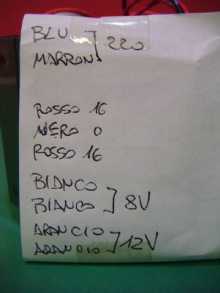 BLU ] 220
MARRON
ROSSO 16
NERO 0
ROSSO 16
BIANCO
BIANCO ] 8V
ARANCIO
ARANCIO ] 12V